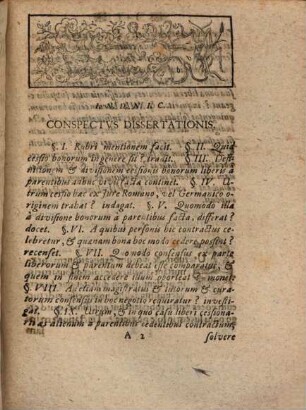 I. N. D. N. I. C.
CONSPECTVS DISSERTATIONIS.
§. I. Rubri mentionem facit. §. II. Quid
cessio bonorum in genere sit? tradit. §. III. Defi-
nitionem & divisionem cessionis bonorum liberis à
parentibus adhuc viventibus factæ continet. §. IV. U-
trum cessio hæc ex jure Romano, vel Germanico o-
riginem trahat? indagat. §. V. Quomodo illa
à divisione bonorum à parentibus facta, differat?
docet. §. VI. A quibus personis hic contractus ce-
lebretur, & quænam bona hoc modo cedere possint?
recenset. §. VII. Quomodo consensus ex parte
liberorum & parentum debeat esse comparatus, &
quem in finem accedere illum oporteat? monet.
§. VIII. An etiam magistratus & tutorum & cura-
torum consensus in hoc negotio requiratur? investi-
gat. §. IX. Utrum, & in quo casu liberi cessiona-
rii æs alienum à parentibus cedentibus contractum,
A 2
solvere